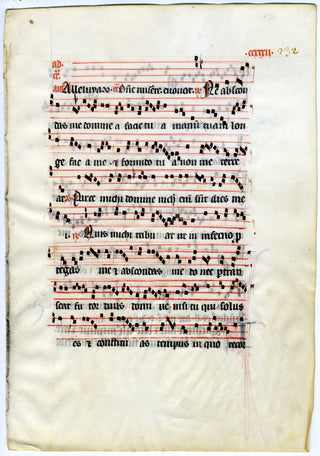 cxxxii. 232
ad
Ne abscon
das me domine a facie tu a manū tuam lon
ge fac a me. et formido tu a non me terre
at. Parce michi domine nich sūt dies me
i. Quis michi tribu at ut in inferno p
tegas me et abscondas me do nec ptrans
eat fu ror tuus domi ne nisi tu qui solus
es Et constitu as tempus in quo recor